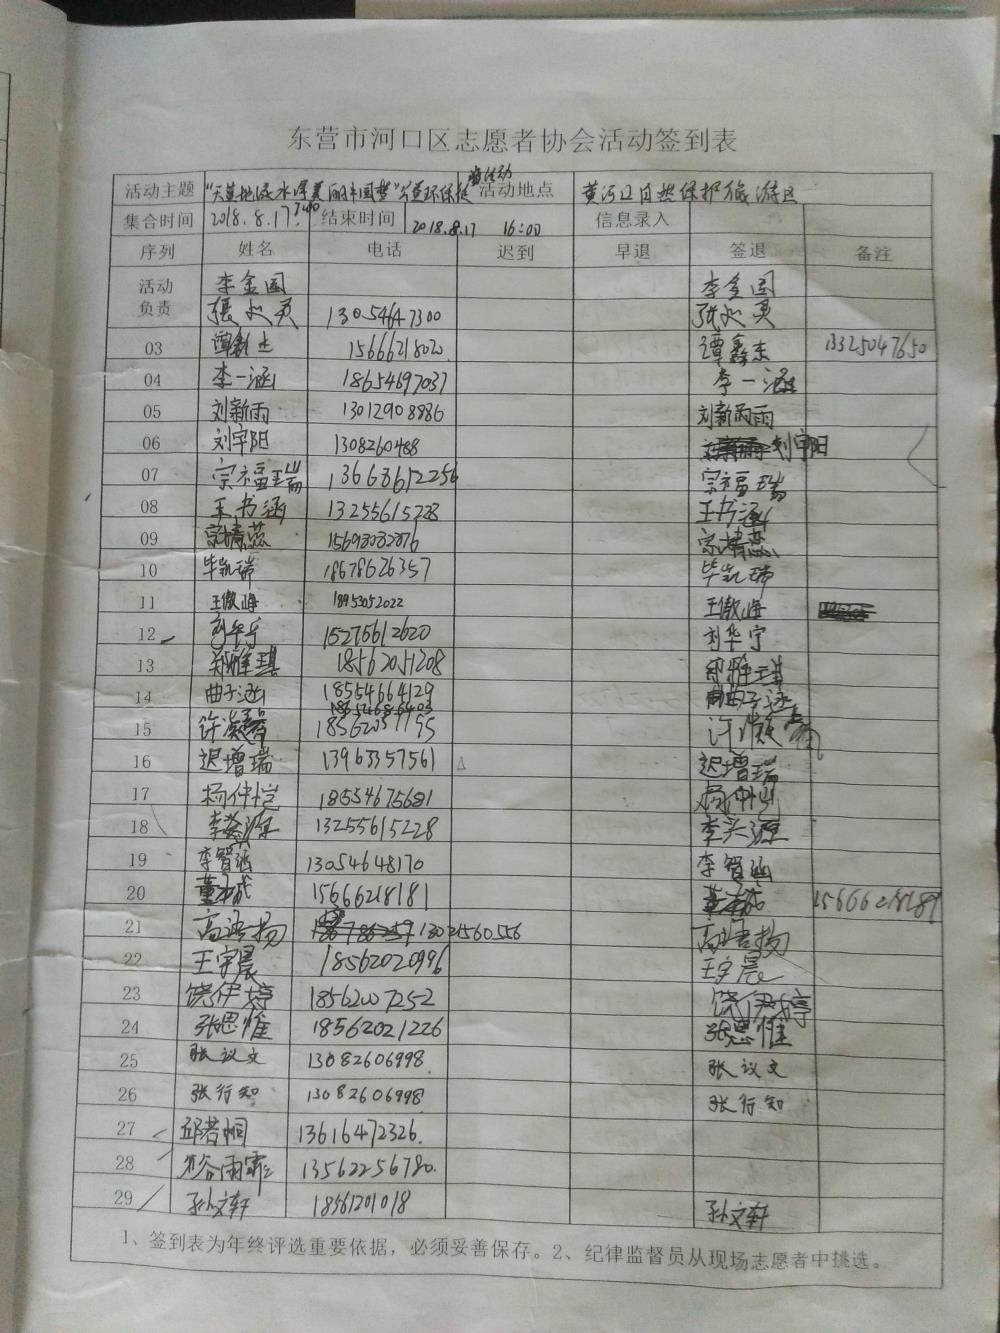 东营市河口区志愿者协会活动签到表
活动主题 活动地点 黄河口自然保护旅游区
集合时间 2018.8.17 结束时间 2018.8.17 16:00 信息录入
序列 姓名 电话 迟到 早退 签退 备注
活动负责 李金国 李金国
13054647300
03 15666218020 谭鑫杰 13325047650
04 李一涵 18654697037 李一涵
05 刘新雨 13012908886 刘新雨
06 刘宇阳 1308260488 刘宇阳
07 宗福瑞 13668612256 宗福瑞
08 王书涵 13255615228 王书涵
09 宗婧蕊 宗婧蕊
10 毕凯瑞 18678626357 毕凯瑞
11 王傲峰 18953052022 王傲峰
12 刘华宁 15275612620 刘华宁
13 郑雅琪 18562051208 郑雅琪
14 曲子涵 18554664129 曲子涵
15 许凝馨 许凝馨
16 迟增瑞 13963357561 迟增瑞
17 杨仲恺 18554675681 杨仲恺
18 13255615228
19 李智涵 13054648170 李智涵
20 15666218181 15666218181
21 高语扬 13021560556 高语扬
22 王宇晨 18562020996 王宇晨
23 饶伊婷 18562007252 饶伊婷
24 张思惟 18562021226 张思惟
25 张议文 13082606998 张议文
26 张行知 13082606998 张行知
27 邱若桐 13616472326
28 谷雨霏 13562256780
29 孙文轩 18561201018 孙文轩
1、签到表为年终评选重要依据，必须妥善保存。2、纪律监督员从现场志愿者中挑选。